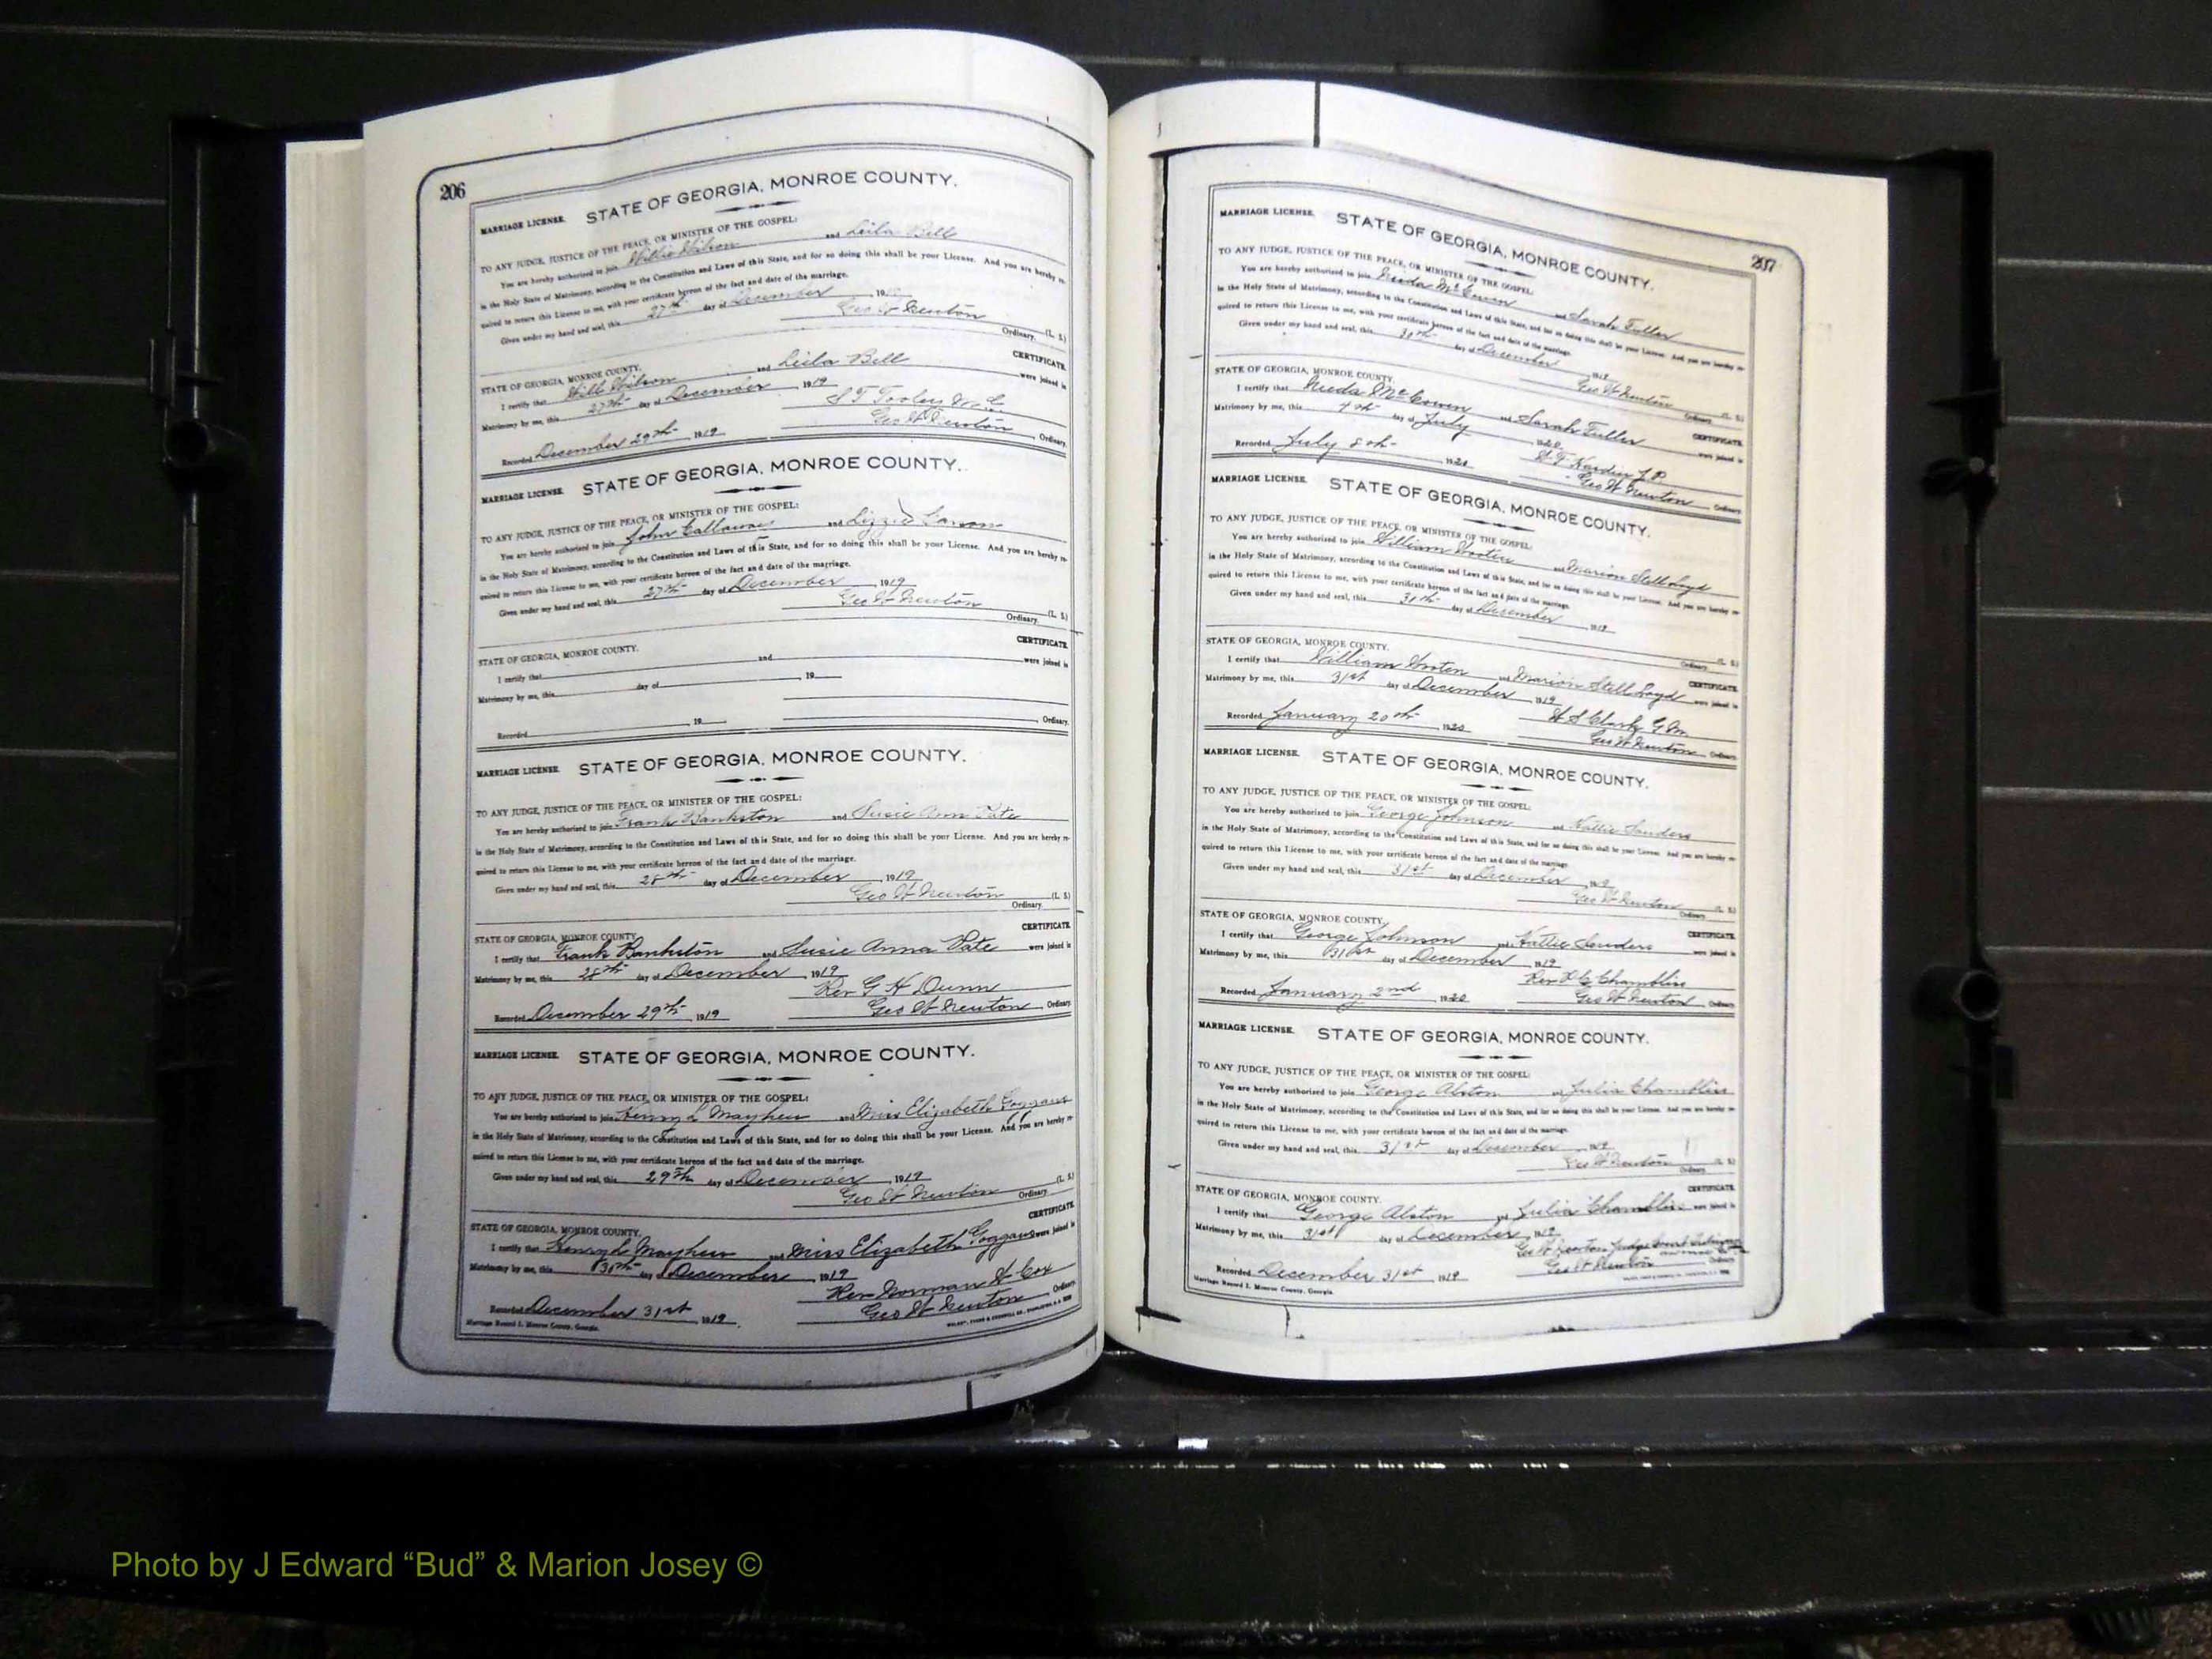 206
MARRIAGE LICENSE. STATE OF GEORGIA, MONROE COUNTY.
TO ANY JUDGE, JUSTICE OF THE PEACE, OR MINISTER OF THE GOSPEL:
You are hereby authorized to join Willie Wilson and Leila Bell
in the Holy State of Matrimony, according to the Constitution and Laws of this State, and for so doing this shall be your License. And you are hereby re-
quired to return this License to me, with your certificate hereon of the fact and date of the marriage.
Given under my hand and seal, this 27th day of December, 19
Geo W Newton (L. S.)
Ordinary.
STATE OF GEORGIA, MONROE COUNTY. CERTIFICATE.
I certify that Will Wilson and Leila Bell were joined in
Matrimony by me, this 27th day of December, 1919
S T Tooley
Recorded December 29th, 1919 Geo W Newton, Ordinary.
MARRIAGE LICENSE STATE OF GEORGIA, MONROE COUNTY.
TO ANY JUDGE, JUSTICE OF THE PEACE, OR MINISTER OF THE GOSPEL:
You are hereby authorized to join John Callaway and Lizzie
in the Holy State of Matrimony, according to the Constitution and Laws of this State, and for so doing this shall be your License. And you are hereby re-
quired to return this License to me, with your certificate hereon of the fact and date of the marriage.
Given under my hand and seal, this 27th day of December, 1919
Geo W Newton (L. S.)
Ordinary.
STATE OF GEORGIA, MONROE COUNTY. CERTIFICATE.
I certify that and were joined in
Matrimony by me, this day of , 19
Recorded , 19 , Ordinary.
MARRIAGE LICENSE. STATE OF GEORGIA, MONROE COUNTY.
TO ANY JUDGE, JUSTICE OF THE PEACE, OR MINISTER OF THE GOSPEL:
You are hereby authorized to join Frank Bankston and Susie Ann Pate
in the Holy State of Matrimony, according to the Constitution and Laws of this State, and for so doing this shall be your License. And you are hereby re-
quired to return this License to me, with your certificate hereon of the fact and date of the marriage.
Given under my hand and seal, this 28th day of December, 1919
Geo W Newton (L. S.)
Ordinary.
STATE OF GEORGIA, MONROE COUNTY. CERTIFICATE.
I certify that Frank Bankston and Susie Anna Pate were joined in
Matrimony by me, this 28th day of December, 1919
Rev G H Dunn
Recorded December 29th, 1919 Geo W Newton, Ordinary.
MARRIAGE LICENSE. STATE OF GEORGIA, MONROE COUNTY.
TO ANY JUDGE, JUSTICE OF THE PEACE, OR MINISTER OF THE GOSPEL:
You are hereby authorized to join Henry L Mayhew and Miss Elizabeth Goggans
in the Holy State of Matrimony, according to the Constitution and Laws of this State, and for so doing this shall be your License. And you are hereby re-
quired to return this License to me, with your certificate hereon of the fact and date of the marriage.
Given under my hand and seal, this 29th day of December, 1919
Geo W Newton (L. S.)
Ordinary.
STATE OF GEORGIA, MONROE COUNTY. CERTIFICATE.
I certify that Henry L Mayhew and Miss Elizabeth Goggans were joined in
Matrimony by me, this 30th day of December, 1919
Rev Norman H Cox
Recorded December 31st, 1919. Geo W Newton, Ordinary.
Marriage Record I. Monroe County, Georgia.
207
MARRIAGE LICENSE. STATE OF GEORGIA, MONROE COUNTY.
TO ANY JUDGE, JUSTICE OF THE PEACE, OR MINISTER OF THE GOSPEL:
You are hereby authorized to join McCowen and Sarah Fuller
in the Holy State of Matrimony, according to the Constitution and Laws of this State, and for so doing this shall be your License. And you are hereby re-
quired to return this License to me, with your certificate hereon of the fact and date of the marriage.
Given under my hand and seal, this 30th day of December, 1919
Geo W Newton (L. S.)
Ordinary.
STATE OF GEORGIA, MONROE COUNTY. CERTIFICATE.
I certify that McCowen and Sarah Fuller were joined in
Matrimony by me, this 4th day of July, 1920
Hardin J P
Recorded July 8th, 1920 Geo W Newton, Ordinary.
MARRIAGE LICENSE. STATE OF GEORGIA, MONROE COUNTY.
TO ANY JUDGE, JUSTICE OF THE PEACE, OR MINISTER OF THE GOSPEL:
You are hereby authorized to join William Wooten and Marion Stell Loyd
in the Holy State of Matrimony, according to the Constitution and Laws of this State, and for so doing this shall be your License. And you are hereby re-
quired to return this License to me, with your certificate hereon of the fact and date of the marriage.
Given under my hand and seal, this day of December, 1919
(L. S.)
Ordinary.
STATE OF GEORGIA, MONROE COUNTY. CERTIFICATE.
I certify that William Wooten and Marion Stell Loyd were joined in
Matrimony by me, this 31st day of December, 1919
Clark G M
Recorded January 20th, 1920 Geo W Newton, Ordinary.
MARRIAGE LICENSE. STATE OF GEORGIA, MONROE COUNTY.
TO ANY JUDGE, JUSTICE OF THE PEACE, OR MINISTER OF THE GOSPEL:
You are hereby authorized to join George Johnson and Hattie Sanders
in the Holy State of Matrimony, according to the Constitution and Laws of this State, and for so doing this shall be your License. And you are hereby re-
quired to return this License to me, with your certificate hereon of the fact and date of the marriage.
Given under my hand and seal, this 31st day of December, 1919
Geo W Newton (L. S.)
Ordinary.
STATE OF GEORGIA, MONROE COUNTY. CERTIFICATE.
I certify that George Johnson and Hattie Sanders were joined in
Matrimony by me, this 31st day of December, 1919
Rev Chambliss
Recorded January 2nd, 1920 Geo W Newton, Ordinary.
MARRIAGE LICENSE. STATE OF GEORGIA, MONROE COUNTY.
TO ANY JUDGE, JUSTICE OF THE PEACE, OR MINISTER OF THE GOSPEL:
You are hereby authorized to join George Alston and Julia Chambliss
in the Holy State of Matrimony, according to the Constitution and Laws of this State, and for so doing this shall be your License. And you are hereby re-
quired to return this License to me, with your certificate hereon of the fact and date of the marriage.
Given under my hand and seal, this 31st day of December, 1919
Geo W Newton (L. S.)
Ordinary.
STATE OF GEORGIA, MONROE COUNTY. CERTIFICATE.
I certify that George Alston and Julia Chambliss were joined in
Matrimony by me, this 31st day of December, 1919
Geo W Newton Judge Court
Recorded December 31st, 1919 Geo W Newton, Ordinary.
Marriage Record I. Monroe County, Georgia.
Photo by J Edward “Bud” & Marion Josey ©